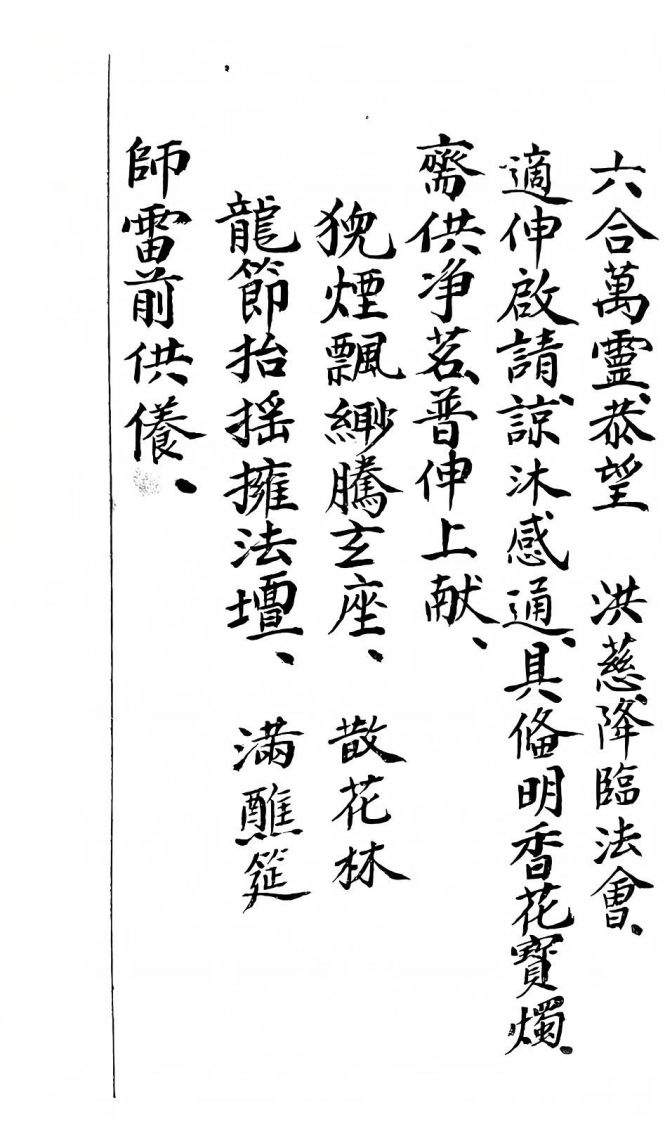 六合萬靈恭望　洪慈降臨法會、
適伸啟請諒沐感通、具俻明香花寶燭、
齋供净茗普伸上献、
猊煙飄緲騰玄座、　散花林
龍節抬摇擁法壇、　滿醮筵
師雷前供養、